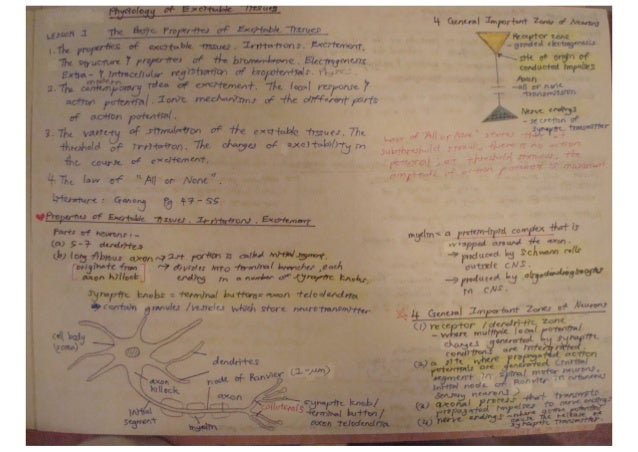 Physiology of Excitable Tissues
Lesson 1 The Basic Properties of Excitable Tissues
1. The properties of excitable tissues. Irritations. Excitement.
The structure & properties of the biomembrane. Electrogenesis.
Extra- & intracellular registration of biopotentials.
2. The contemporary idea of excitement. The local response &
action potential. Ionic mechanisms of the different parts
of action potential.
3. The variety of stimulation of the excitable tissues. The
threshold of irritation. The changes of excitability in
the course of excitement.
4. The law of "All or None".
Literature: Ganong Pg 47-55
Properties of Excitable Tissues. Irritations. Excitement
Parts of neurons:-
(a) 5-7 dendrites
(b) long fibrous axon → 1st portion is called initial segment.
originate from
axon hillock
→ divides into terminal branches, each
ending in a number of synaptic knobs.
synaptic knobs = terminal buttons = axon telodendria
→ contain granules / vesicles which store neurotransmitter
cell body
(soma)
dendrites
axon
hillock
node of Ranvier (1-μm)
axon
initial
segment
myelin
collaterals
synaptic knob/
terminal button/
axon telodendria
4 General Important Zones of Neurons
Receptor zone
- graded electrogenesis
site of origin of
conducted impulses
Axon
- all or none
transmission
Nerve endings
- secretion of
synaptic transmitter
Law of "All or None" states that
subthreshold stimuli, there is no action
potential; threshold stimulus, the
amplitude of action potential is maximum
myelin = a protein-lipid complex that is
wrapped around the axon.
→ produced by Schwann cells
outside CNS.
→ produced by oligodendrogliocytes
in CNS.
4 General Important Zones of Neurons
(1) receptor / dendritic zone
- where multiple local potential
changes generated by synaptic
conditions are integrated.
(2) a site where propagated action
potentials are generated (initial
segment in spinal motor neurons,
initial node of Ranvier in cutaneous
sensory neurons)
(3) axonal process that transmits
propagated impulses to nerve endings
(4) nerve endings - where action potentials
cause the release of
synaptic transmitter.